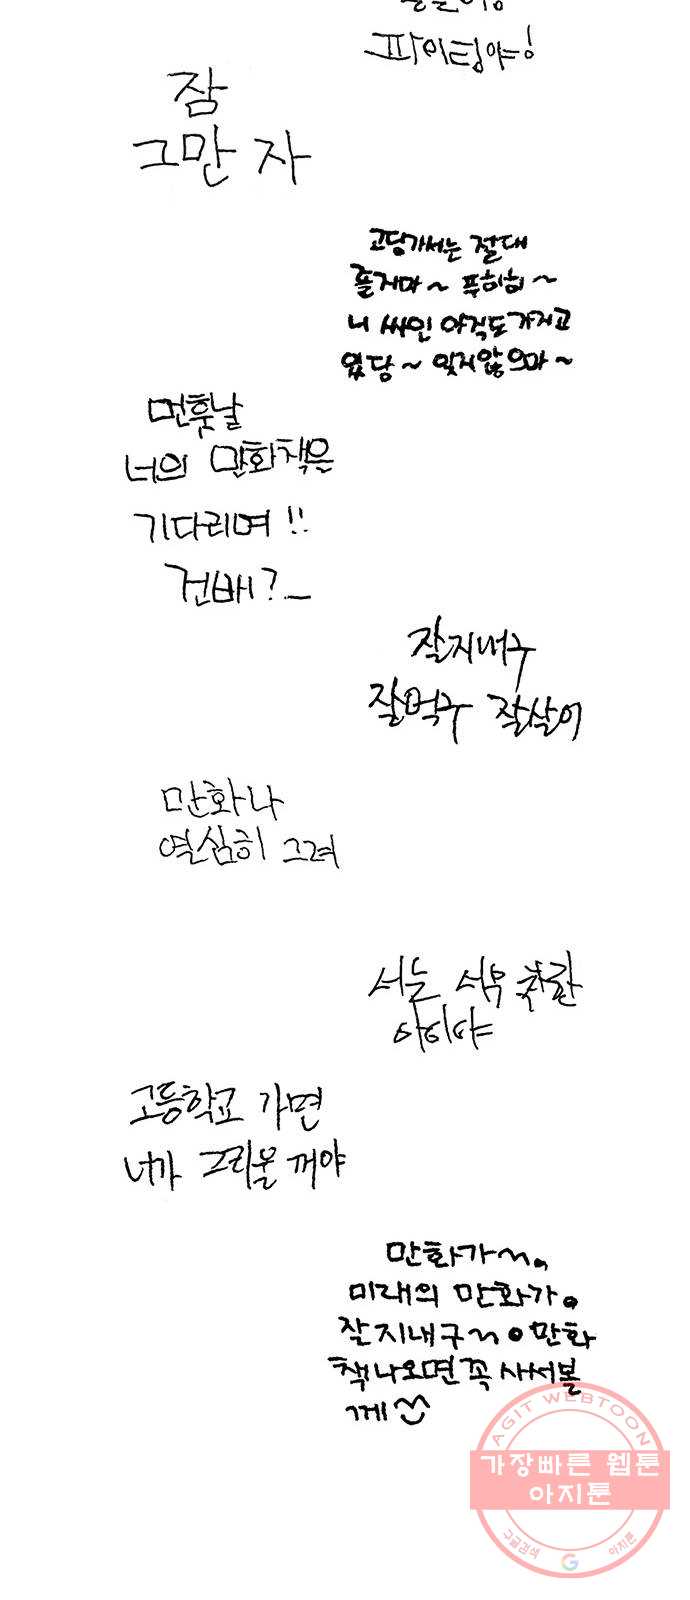 파이팅야!
잠
그만 자
고딩가서는 절대
졸지마~ 푸히히~
니 싸인 아직도 가지고
있당~ 잊지않으마~
먼훗날
너의 만화책은
기다리며!!
건배?_
잘지내구
잘먹구 잘살어
만화나
열심히 그려
아이야
고등학교 가면
너가 그리울꺼야
만화가~.
미래의 만화가.
잘지내구~.만화
책나오면 꼭 사서볼
께
AGIT WEBTOON
가장빠른 웹툰
아지툰
구글검색 G 아지툰